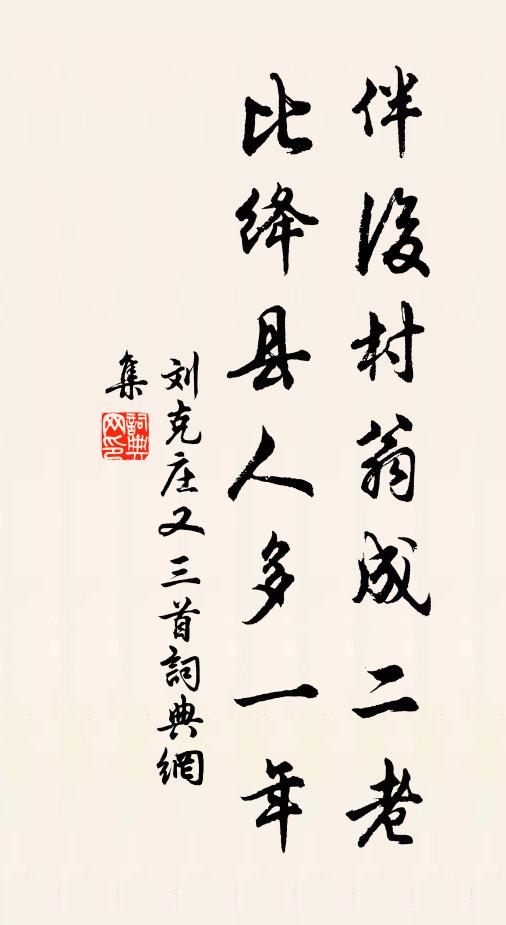 伴後村翁成二老
比绛县人多一年
刘克庄又三首詞典網
集
詞典网印